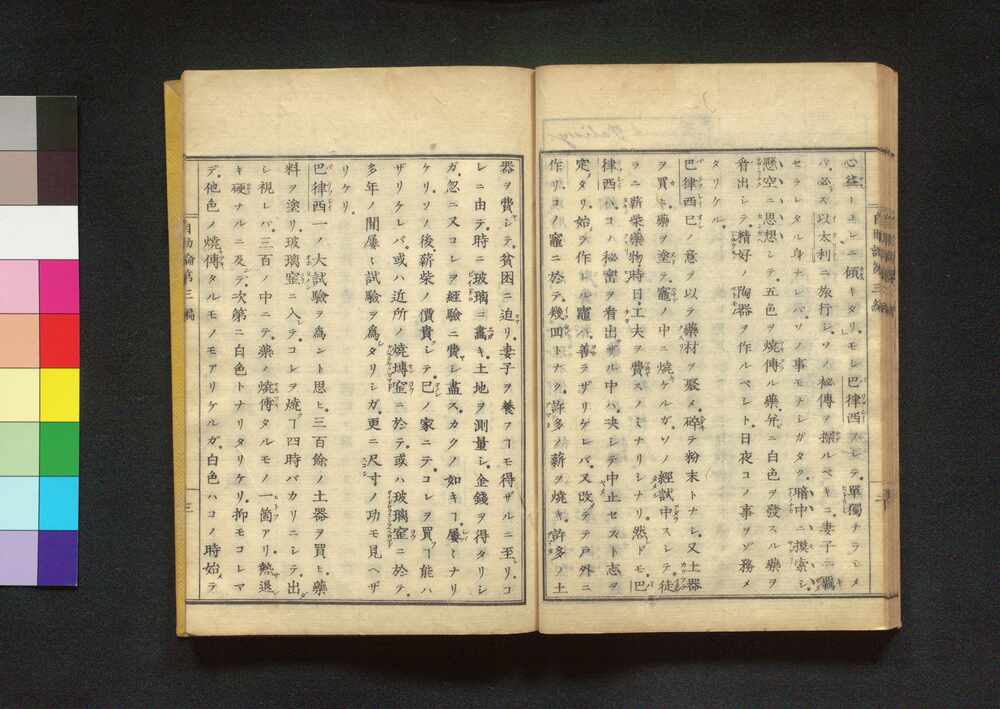 心盆コレニ傾キタリ。モシ巴律西ヲシテ單獨ナラシメ
バ、必ズ以太利ニ旅行シ、ソノ秘傳ヲ探ルベキニ、妻子ニ羈
セラレタル身ナレバ、ソノ事モナシガタク、暗中ニ摸索シ、
懸空ニ思想シテ、五色ヲ燒傳ル藥、幷ニ白色ヲ發スル藥ヲ
看出シテ、精好ノ陶器ヲ作ルベシト、日夜コノ事ヲゾ務メ
タリケル。
巴律西已ノ意ヲ以テ藥材ヲ聚メ、碎テ粉末トナシ、又土器
ヲ買ヒ藥ヲ塗テ、竈ノ中ニ燒ケルガ、ソノ經試中ラズシテ、徒
ラニ薪柴藥物時日工夫ヲ費スノミナリシナリ。然ドモ巴
律西ハコノ秘密ヲ看出サザル中ハ、決シテ中止セズト志ヲ
定メタリ。始メ作ル竈善ラザリケレバ、又改メテ戸外ニ
作リ、コノ竈ニ於テ幾囘トナク、許多ノ薪ヲ燒キ、許多ノ土
器ヲ費シテ、貧困ニ迫リ、妻子ヲ養フヿモ得ザルニ至レリ。コ
レニ由テ、時ニ玻璃ニ畵キ、土地ヲ測量シ、金錢ヲ得タリシ
ガ、忽ニ又コレヲ經驗ニ費シ盡ス。カクノ如キヿ屢〻ナリ
ケリ。ソノ後、薪柴ノ價貴シテ、已ノ家ニテコレヲ買フヿ能ハ
ザリケレバ、或ハ近所ノ燒塼窰ニ於テ、或ハ玻璃窰ニ於テ、
多年ノ間屢〻試驗ヲ爲タリシガ、更ニ尺寸ノ功モ見ヘザ
リケリ。
巴律西一ノ大試驗ヲ爲ント思ヒ、三百餘ノ土器ヲ買ヒ、藥
料ヲ塗リ、玻璃窰ニ入テ、コレヲ燒ヿ四時バカリニシテ、出
シ視レバ、三百ノ中ニテ、藥ノ燒傳タルモノ一箇アリ。熱退
キ硬ナルニ及テ、次第ニ白色トナリタリケリ。抑モコレマ
デ、他色ノ燒傳タルモノモアリケルガ、白色ハコノ時始テ
自助論第三編
三